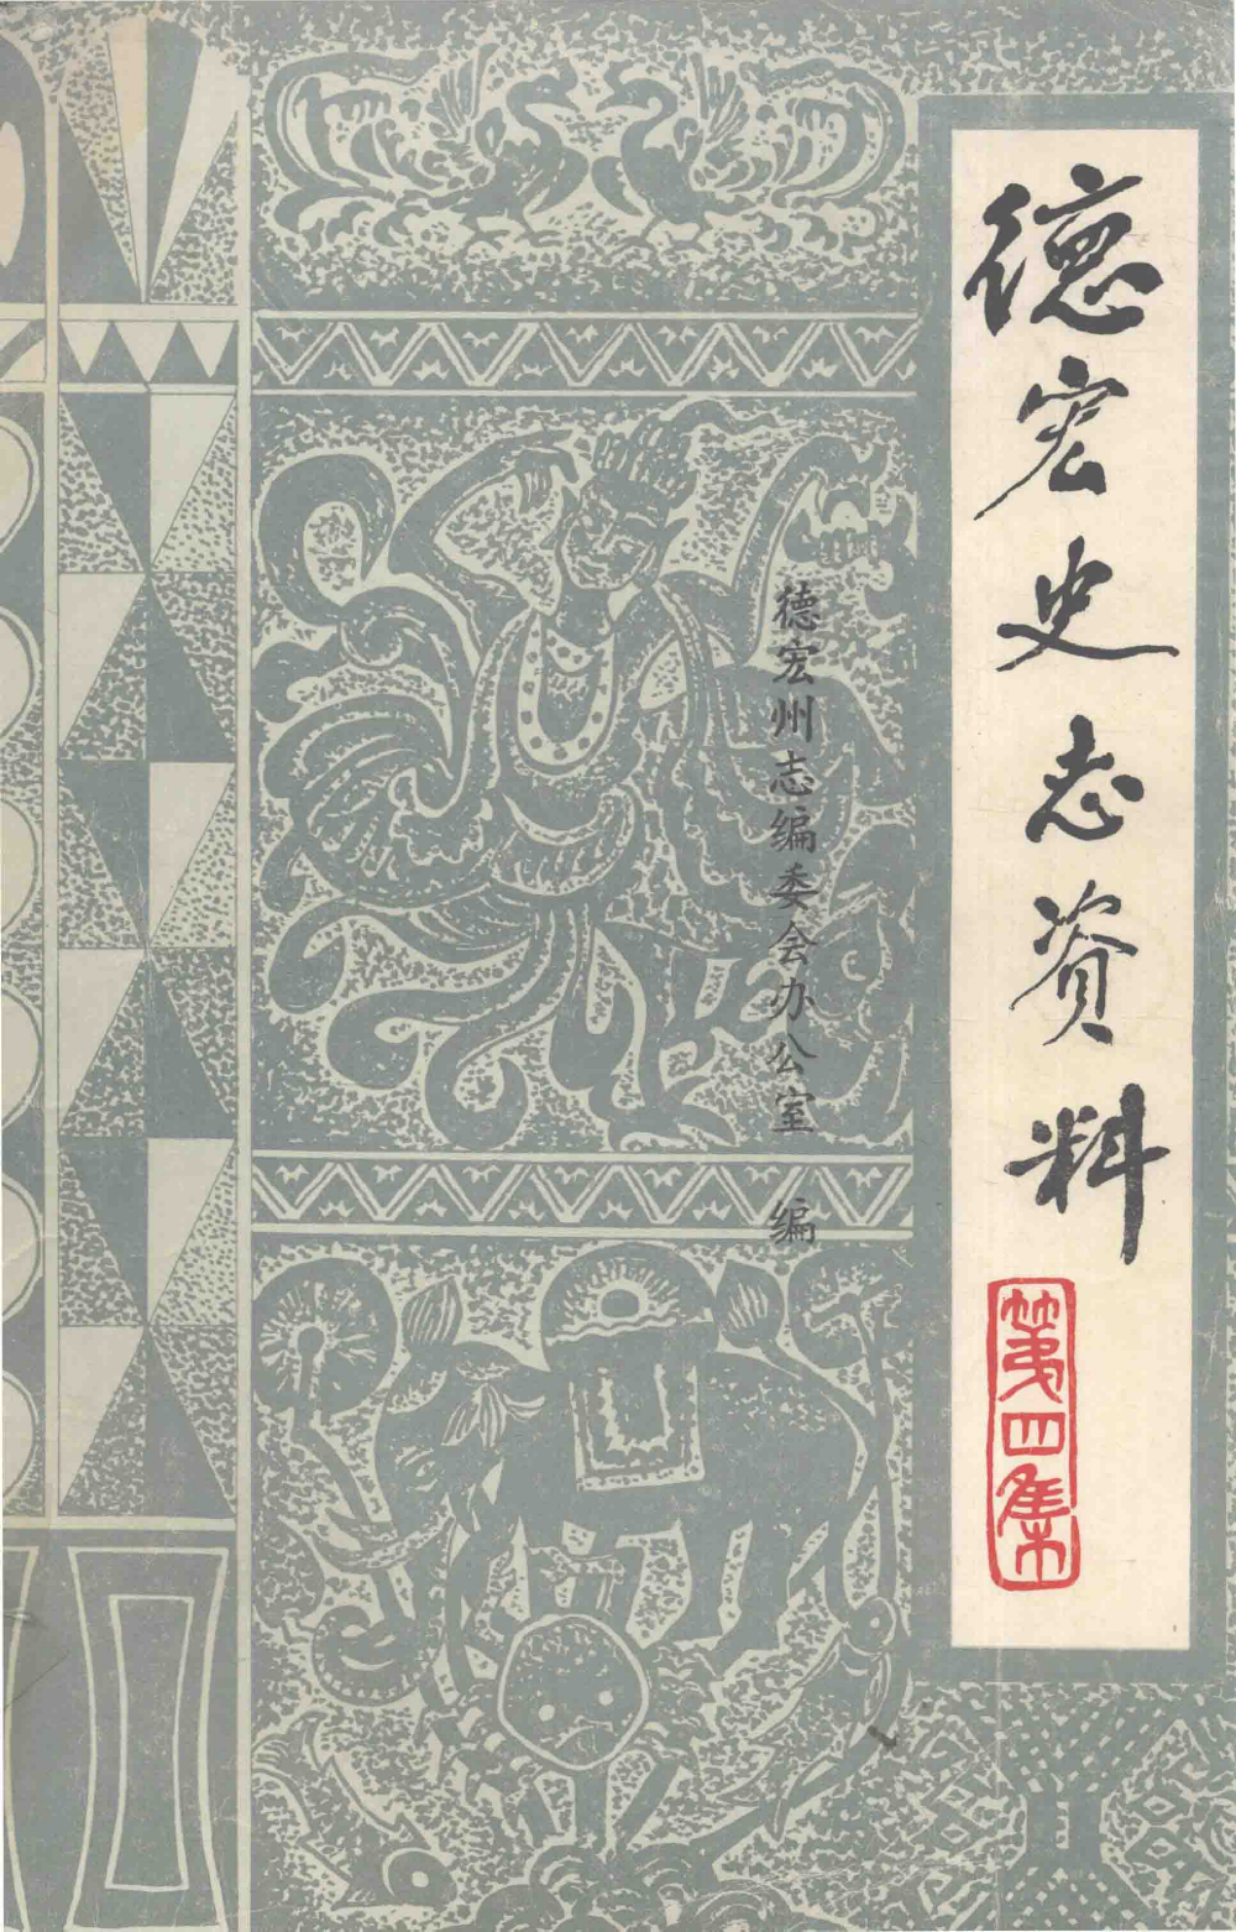 德宏史志资料
第四集
德宏州志编委会办公室 编